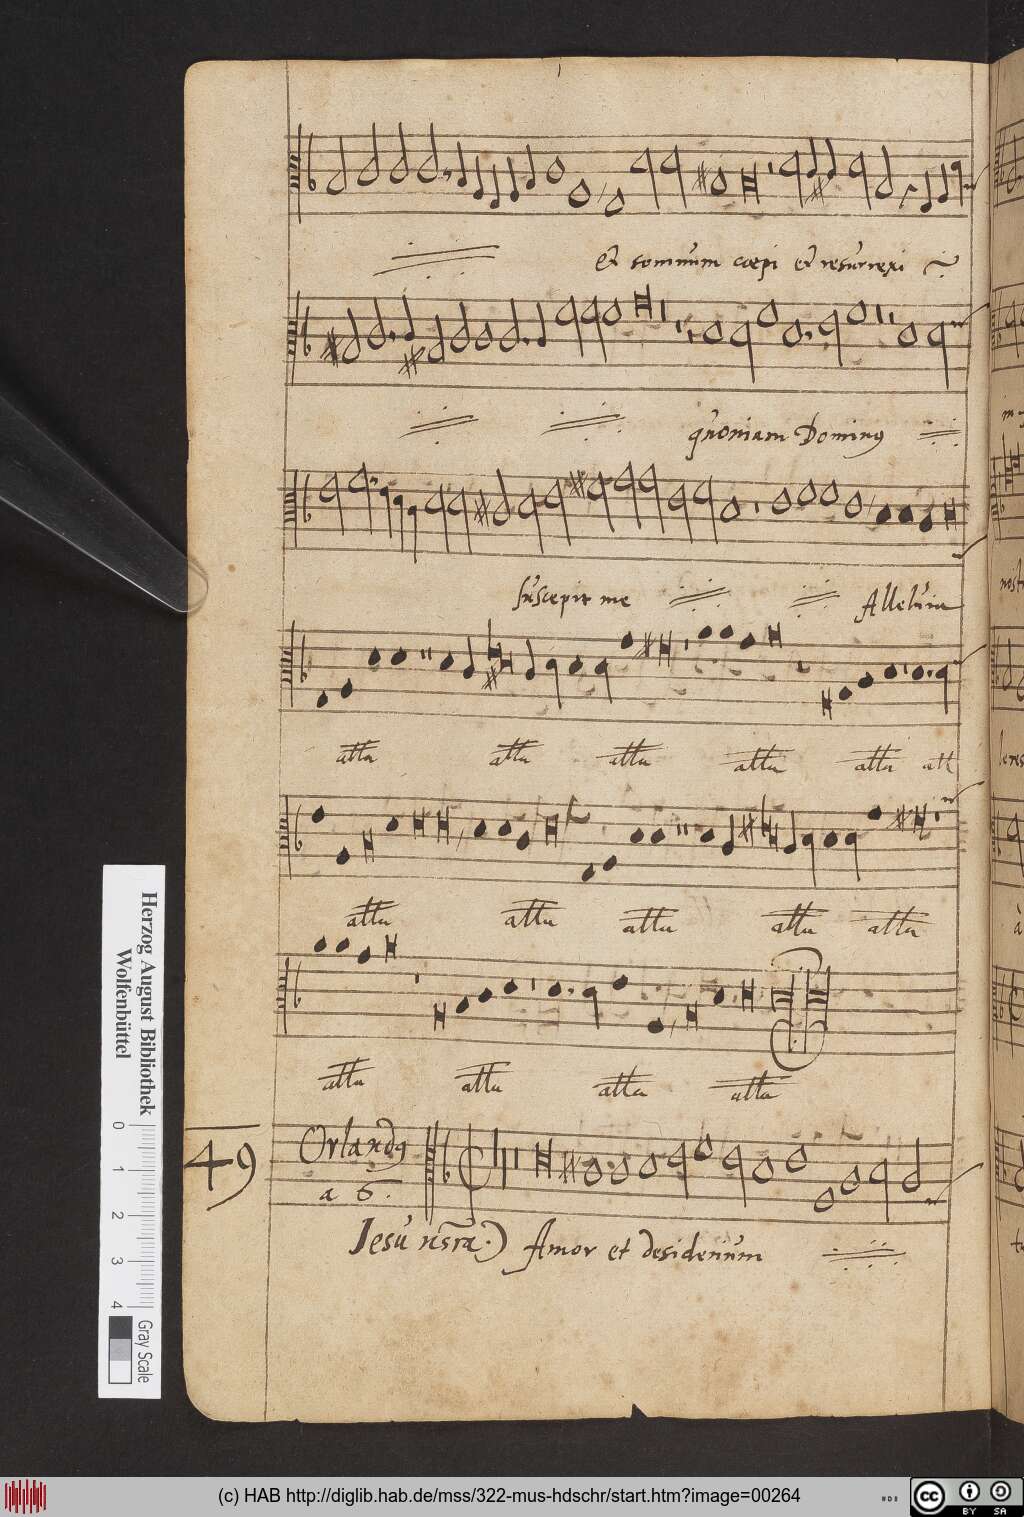 Et somnum cœpi et resurrexi
quoniam Dominus
suscepit me Alleluia
alla alla alla alla alla all
alla alla alla alla alla
alla alla alla alla
49
Orlandus
a 6.
Jesu nsra.) Amor et desiderium
Herzog August Bibliothek
Wolfenbüttel
0 1 2 3 4
Gray Scale
(c) HAB http://diglib.hab.de/mss/322-mus-hdschr/start.htm?image=00264
cc BY SA